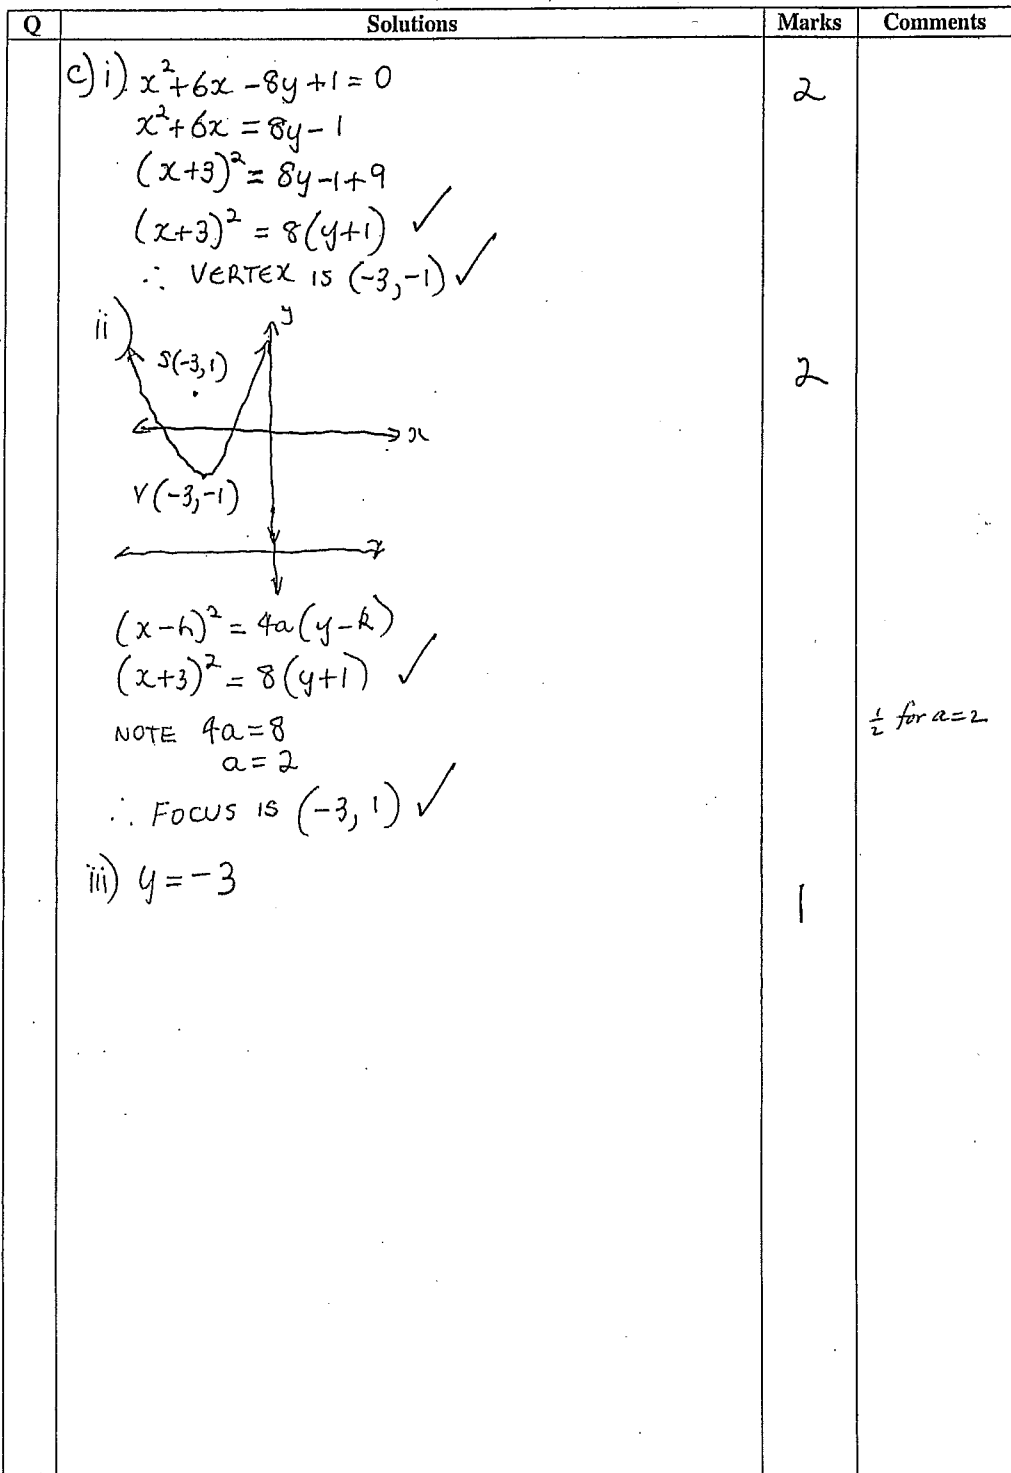 Q Solutions Marks Comments
c) i) x²+6x-8y+1=0 2
x²+6x = 8y-1
(x+3)² = 8y-1+9
(x+3)² = 8(y+1) ✓
∴ VERTEX IS (-3,-1) ✓
ii) y
S(-3,1) 2
x
V(-3,-1)
(x-h)² = 4a(y-k)
(x+3)² = 8(y+1) ✓
NOTE 4a=8 ½ for a=2
a=2
∴ FOCUS IS (-3, 1) ✓
iii) y=-3 1